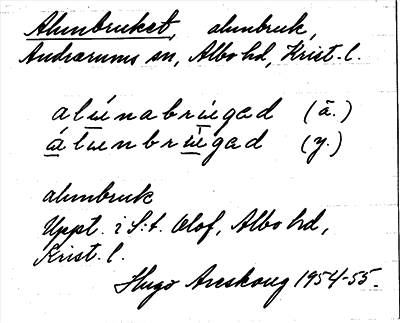 Alunbruket, alunbruk,
Andrarums sn, Albo hd, Krist. l.
(ä.)
(y.)
alunbruk
Uppt. i S:t Olof, Albo hd,
Krist. l.
Hugo Areskoug 1954-55.